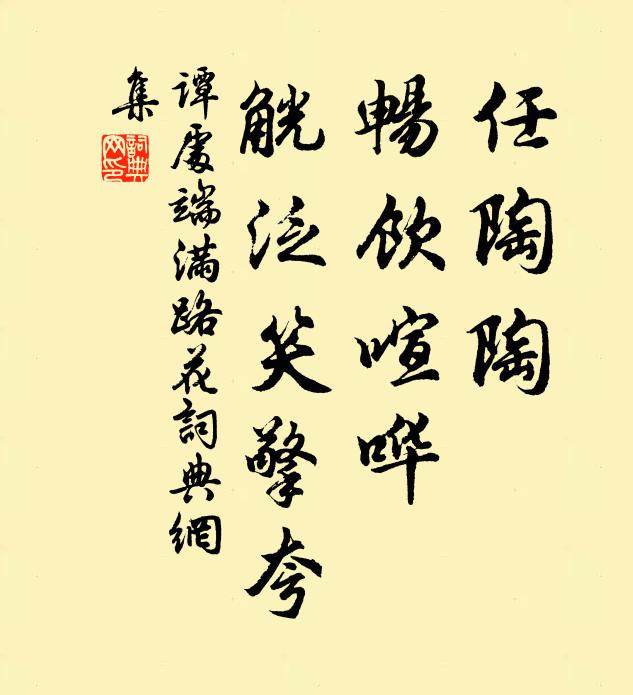 任陶陶
暢飲喧哗
觥泛笑擎夸
谭處端满路花詞典網
集
詞典
网印